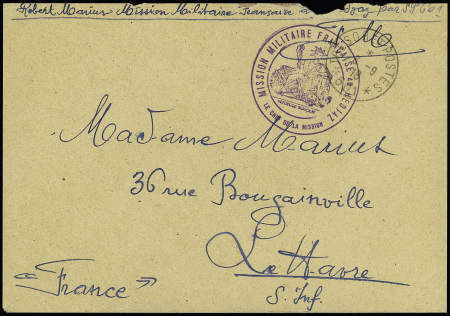 Robert Marius Mission Militaire Française
MISSION MILITAIRE FRANÇAISE AU HEDJAZ
LE CHEF DE LA MISSION
POSTES
Madame Marius
36 rue Bougainville
Le Havre
S. Inf.
« France »